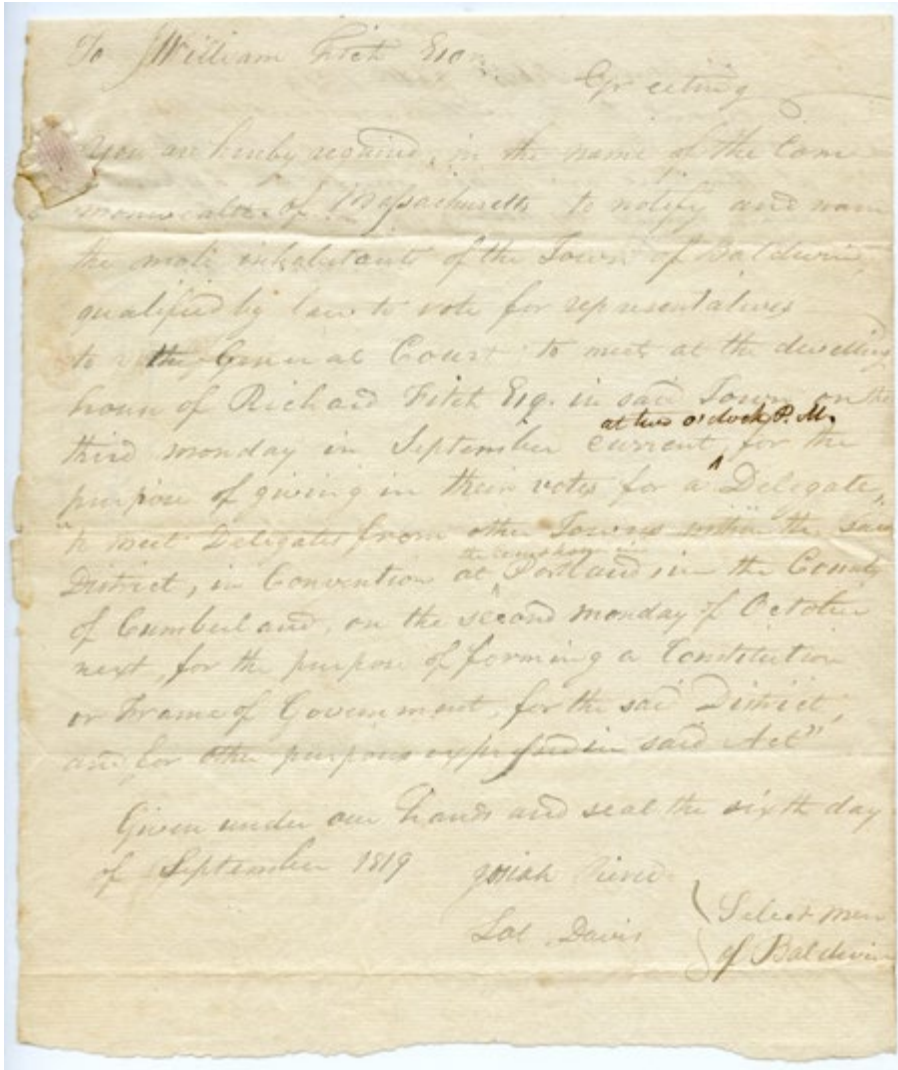 To William Fitch Esqr.
Greeting
You are hereby required, in the name of the Com
monwealth of Massachusetts to notify and warn
the male inhabitants of the Town of Baldwin,
qualified by law to vote for representatives
to the General Court to meet at the dwelling
house of Richard Fitch Esq. in said Town on the
at two o'clock P.M.
third monday in September current, for the
purpose of giving in their votes for a Delegate,
"to meet Delegates from other Towns within the said
the court house in
District, in Convention at Portland in the County
of Cumberland, on the second monday of October
next, for the purpose of forming a Constitution
or Frame of Government, for the said District,
and for other purposes expressed in said Act"
Given under our hands and seal the sixth day
of September 1819 Josiah Pierce
Lot Davis
Select men
of Baldwin